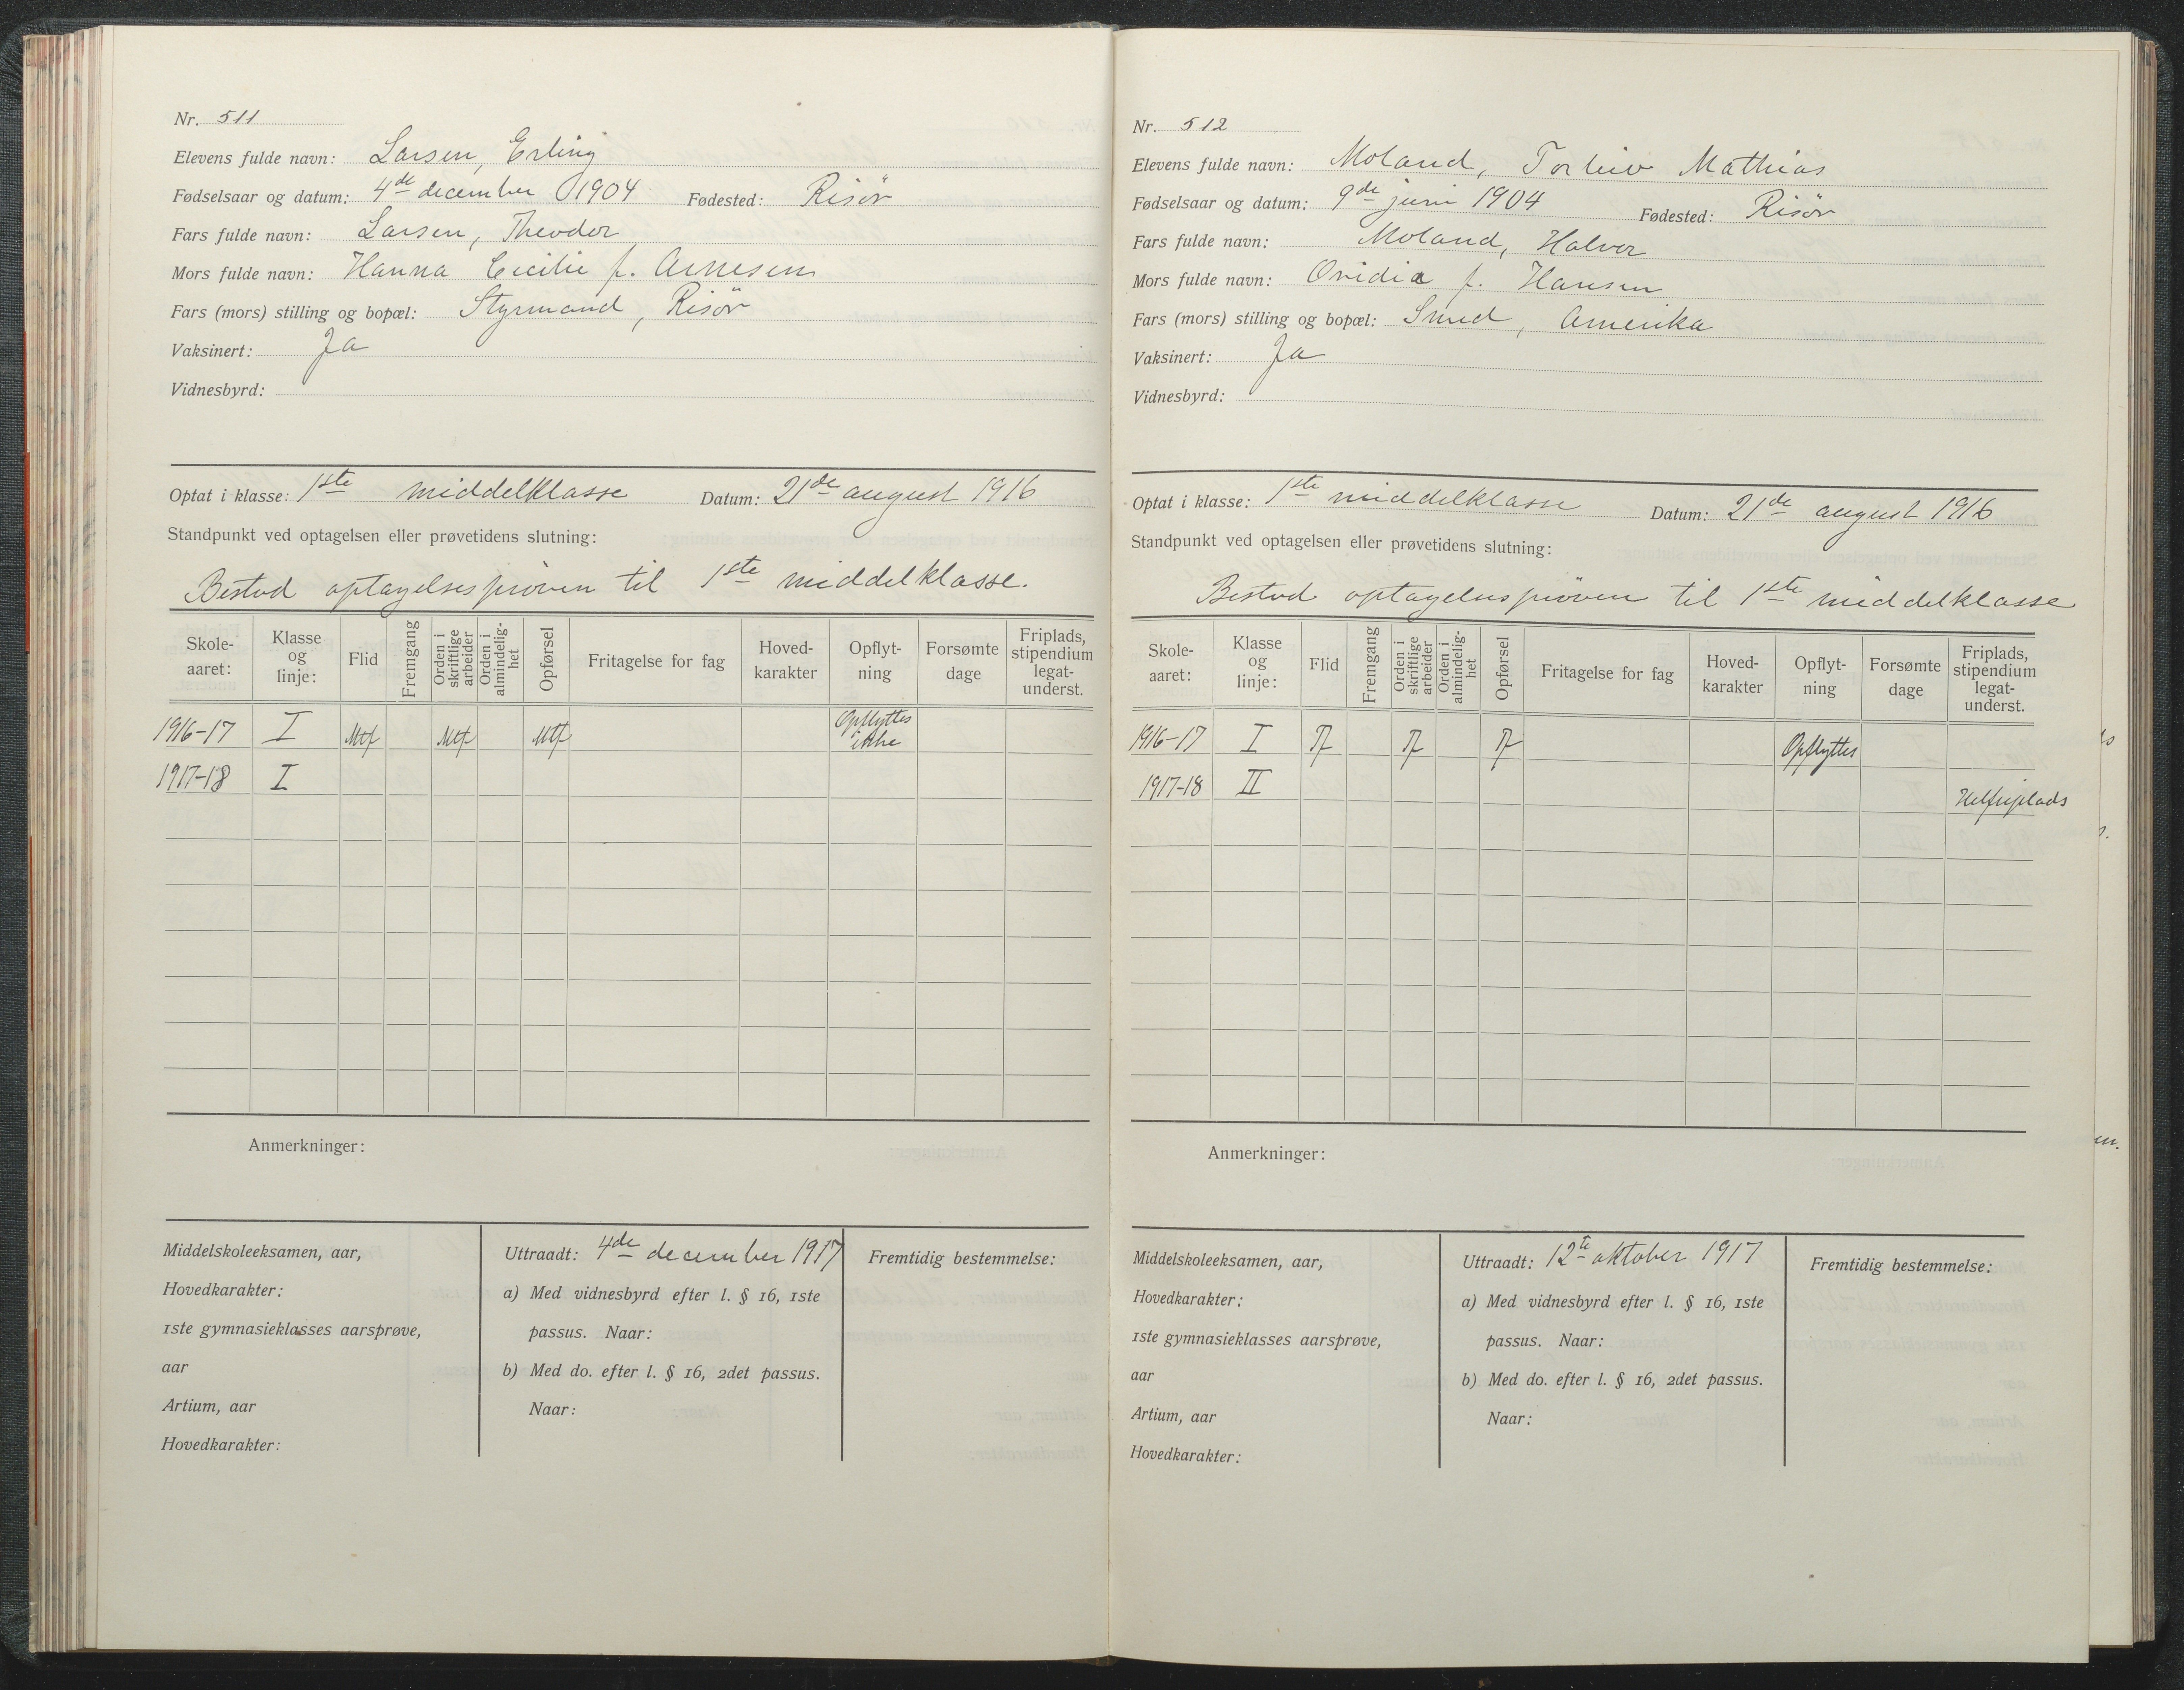 Nr. 511
Elevens fulde navn: Larsen, Erling
Fødselsaar og datum: 4de december 1904 Fødested: Risör
Fars fulde navn: Larsen, Theodor
Mors fulde navn: Hanna Cecilie f. Arnesen
Fars (mors) stilling og bopæl: Styrmand, Risör
Vaksinert: Ja
Vidnesbyrd:
Optat i klasse: 1ste middelklasse Datum: 21de august 1916
Standpunkt ved optagelsen eller prøvetidens slutning:
Bestod optagelsesprøven til 1ste middelklasse.
Skole-aaret: Klasse og linje: Flid Fremgang Orden i skriftlige arbeider Orden i almindelig-het Opførsel Fritagelse for fag Hoved-karakter Opflyt-ning Forsømte dage Friplads, stipendium legat-underst.
1916-17 I Mtf Mtf Mtf Opflyttes ikke
1917-18 I
Anmerkninger:
Middelskoleeksamen, aar,
Hovedkarakter:
1ste gymnasieklasses aarsprøve,
aar
Artium, aar
Hovedkarakter:
Uttraadt: 4de december 1917
a) Med vidnesbyrd efter l. § 16, 1ste
passus. Naar:
b) Med do. efter l. § 16, 2det passus.
Naar:
Fremtidig bestemmelse:
Nr. 512
Elevens fulde navn: Moland, Torleiv Mathias
Fødselsaar og datum: 9de juni 1904 Fødested: Risör
Fars fulde navn: Moland, Halvor
Mors fulde navn: Ovidia f. Hansen
Fars (mors) stilling og bopæl: Smed, Amerika
Vaksinert: Ja
Vidnesbyrd:
Optat i klasse: 1ste middelklasse Datum: 21de august 1916
Standpunkt ved optagelsen eller prøvetidens slutning:
Bestod optagelsesprøven til 1ste middelklasse
Skole-aaret: Klasse og linje: Flid Fremgang Orden i skriftlige arbeider Orden i almindelig-het Opførsel Fritagelse for fag Hoved-karakter Opflyt-ning Forsømte dage Friplads, stipendium legat-underst.
1916-17 I Tf Tf Tf Opflyttes
1917-18 II Helfriplads
Anmerkninger:
Middelskoleeksamen, aar,
Hovedkarakter:
1ste gymnasieklasses aarsprøve,
aar
Artium, aar
Hovedkarakter:
Uttraadt: 12te oktober 1917
a) Med vidnesbyrd efter l. § 16, 1ste
passus. Naar:
b) Med do. efter l. § 16, 2det passus.
Naar:
Fremtidig bestemmelse: